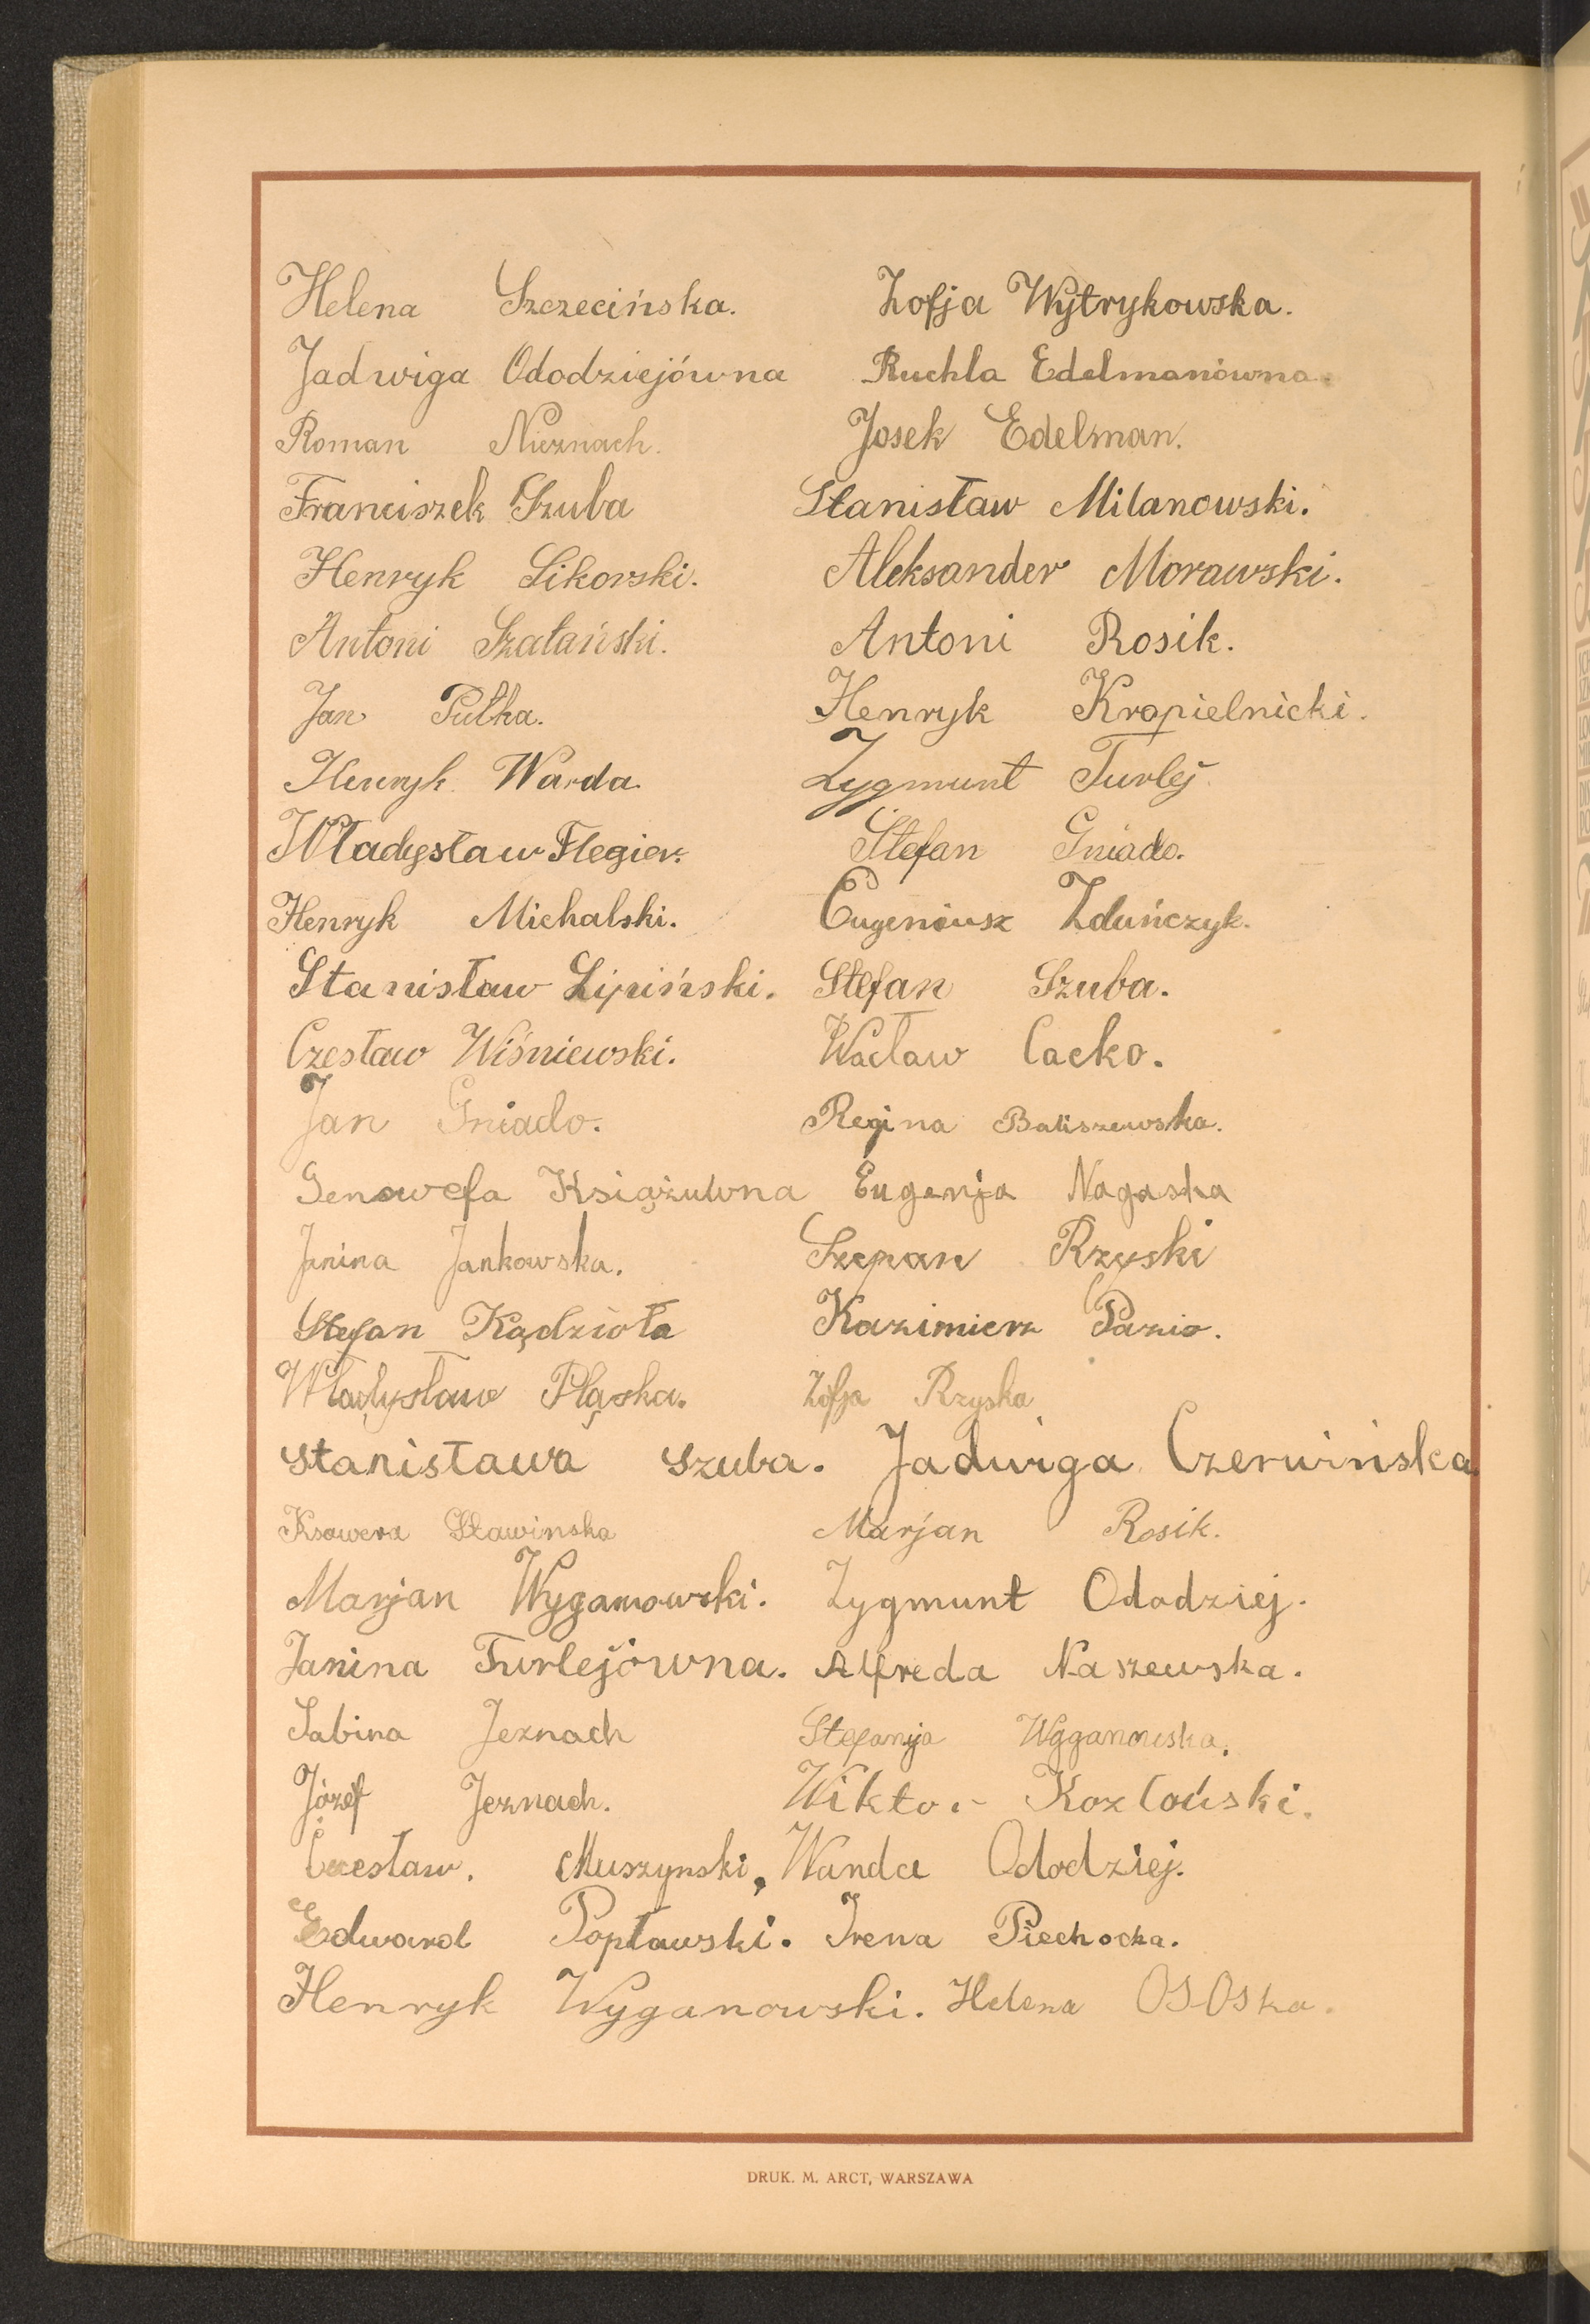 Helena Szczecińska. Zofja Wytrykowska.
Jadwiga Ododziejówna Ruchla Edelmanówna.
Roman Nieznach. Josek Edelman.
Franciszek Szuba Stanisław Milanowski.
Henryk Sikorski. Aleksander Morawski.
Antoni Szatański. Antoni Rosik.
Jan Pułka. Henryk Kropielnicki.
Henryk Warda. Zygmunt Turlej
Władysław Flegier. Stefan Gniado.
Henryk Michalski. Eugeniusz Zduńczyk.
Stanisław Lipiński. Stefan Szuba.
Czesław Wiśniewski. Wacław Cacko.
Jan Gniado. Regina Baliszewska.
Genowefa Książuwna Eugenja Nagaska
Janina Jankowska. Szepan Rzyski
Stefan Kądzioła Kazimierz Pazio.
Władysław Pląska. Zofja Rzyska
Stanisława Szuba. Jadwiga Czerwińska
Ksawera Sławinska Marjan Rosik.
Marjan Wyganowski. Zygmunt Ododziej.
Janina Turlejówna. Alfreda Naszewska.
Sabina Jeznach Stefanja Wyganowska.
Józef Jeznach. Wiktor Kozłowski.
Czesław. Muszynski, Wanda Ododziej.
Edward Popławski. Irena Piechocka.
Henryk Wyganowski. Helena OSOska.
DRUK. M. ARCT, WARSZAWA